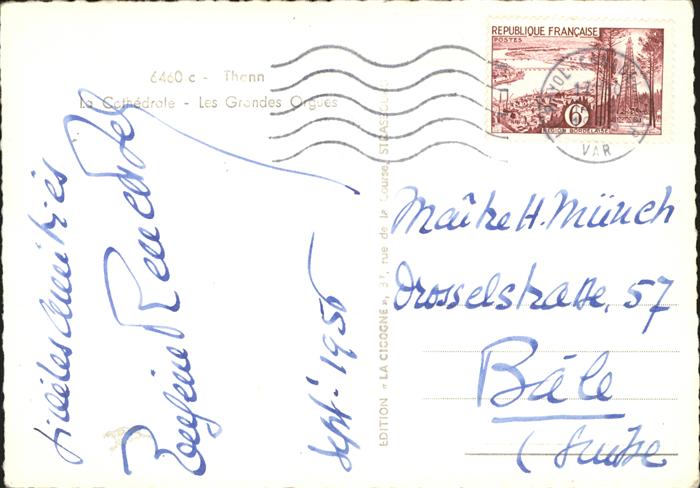 6460 c - Thann
La Cathédrale - Les Grandes Orgues
RÉPUBLIQUE FRANÇAISE
POSTES
6F
RÉGION BORDELAISE
VAR
fidèles amitiés
Sept. 1956
EDITION « LA CICOGNE », 37, rue de la Course, STRASBOURG
Maître H. Münch
Drosselstrasse, 57
Bâle
(Suisse